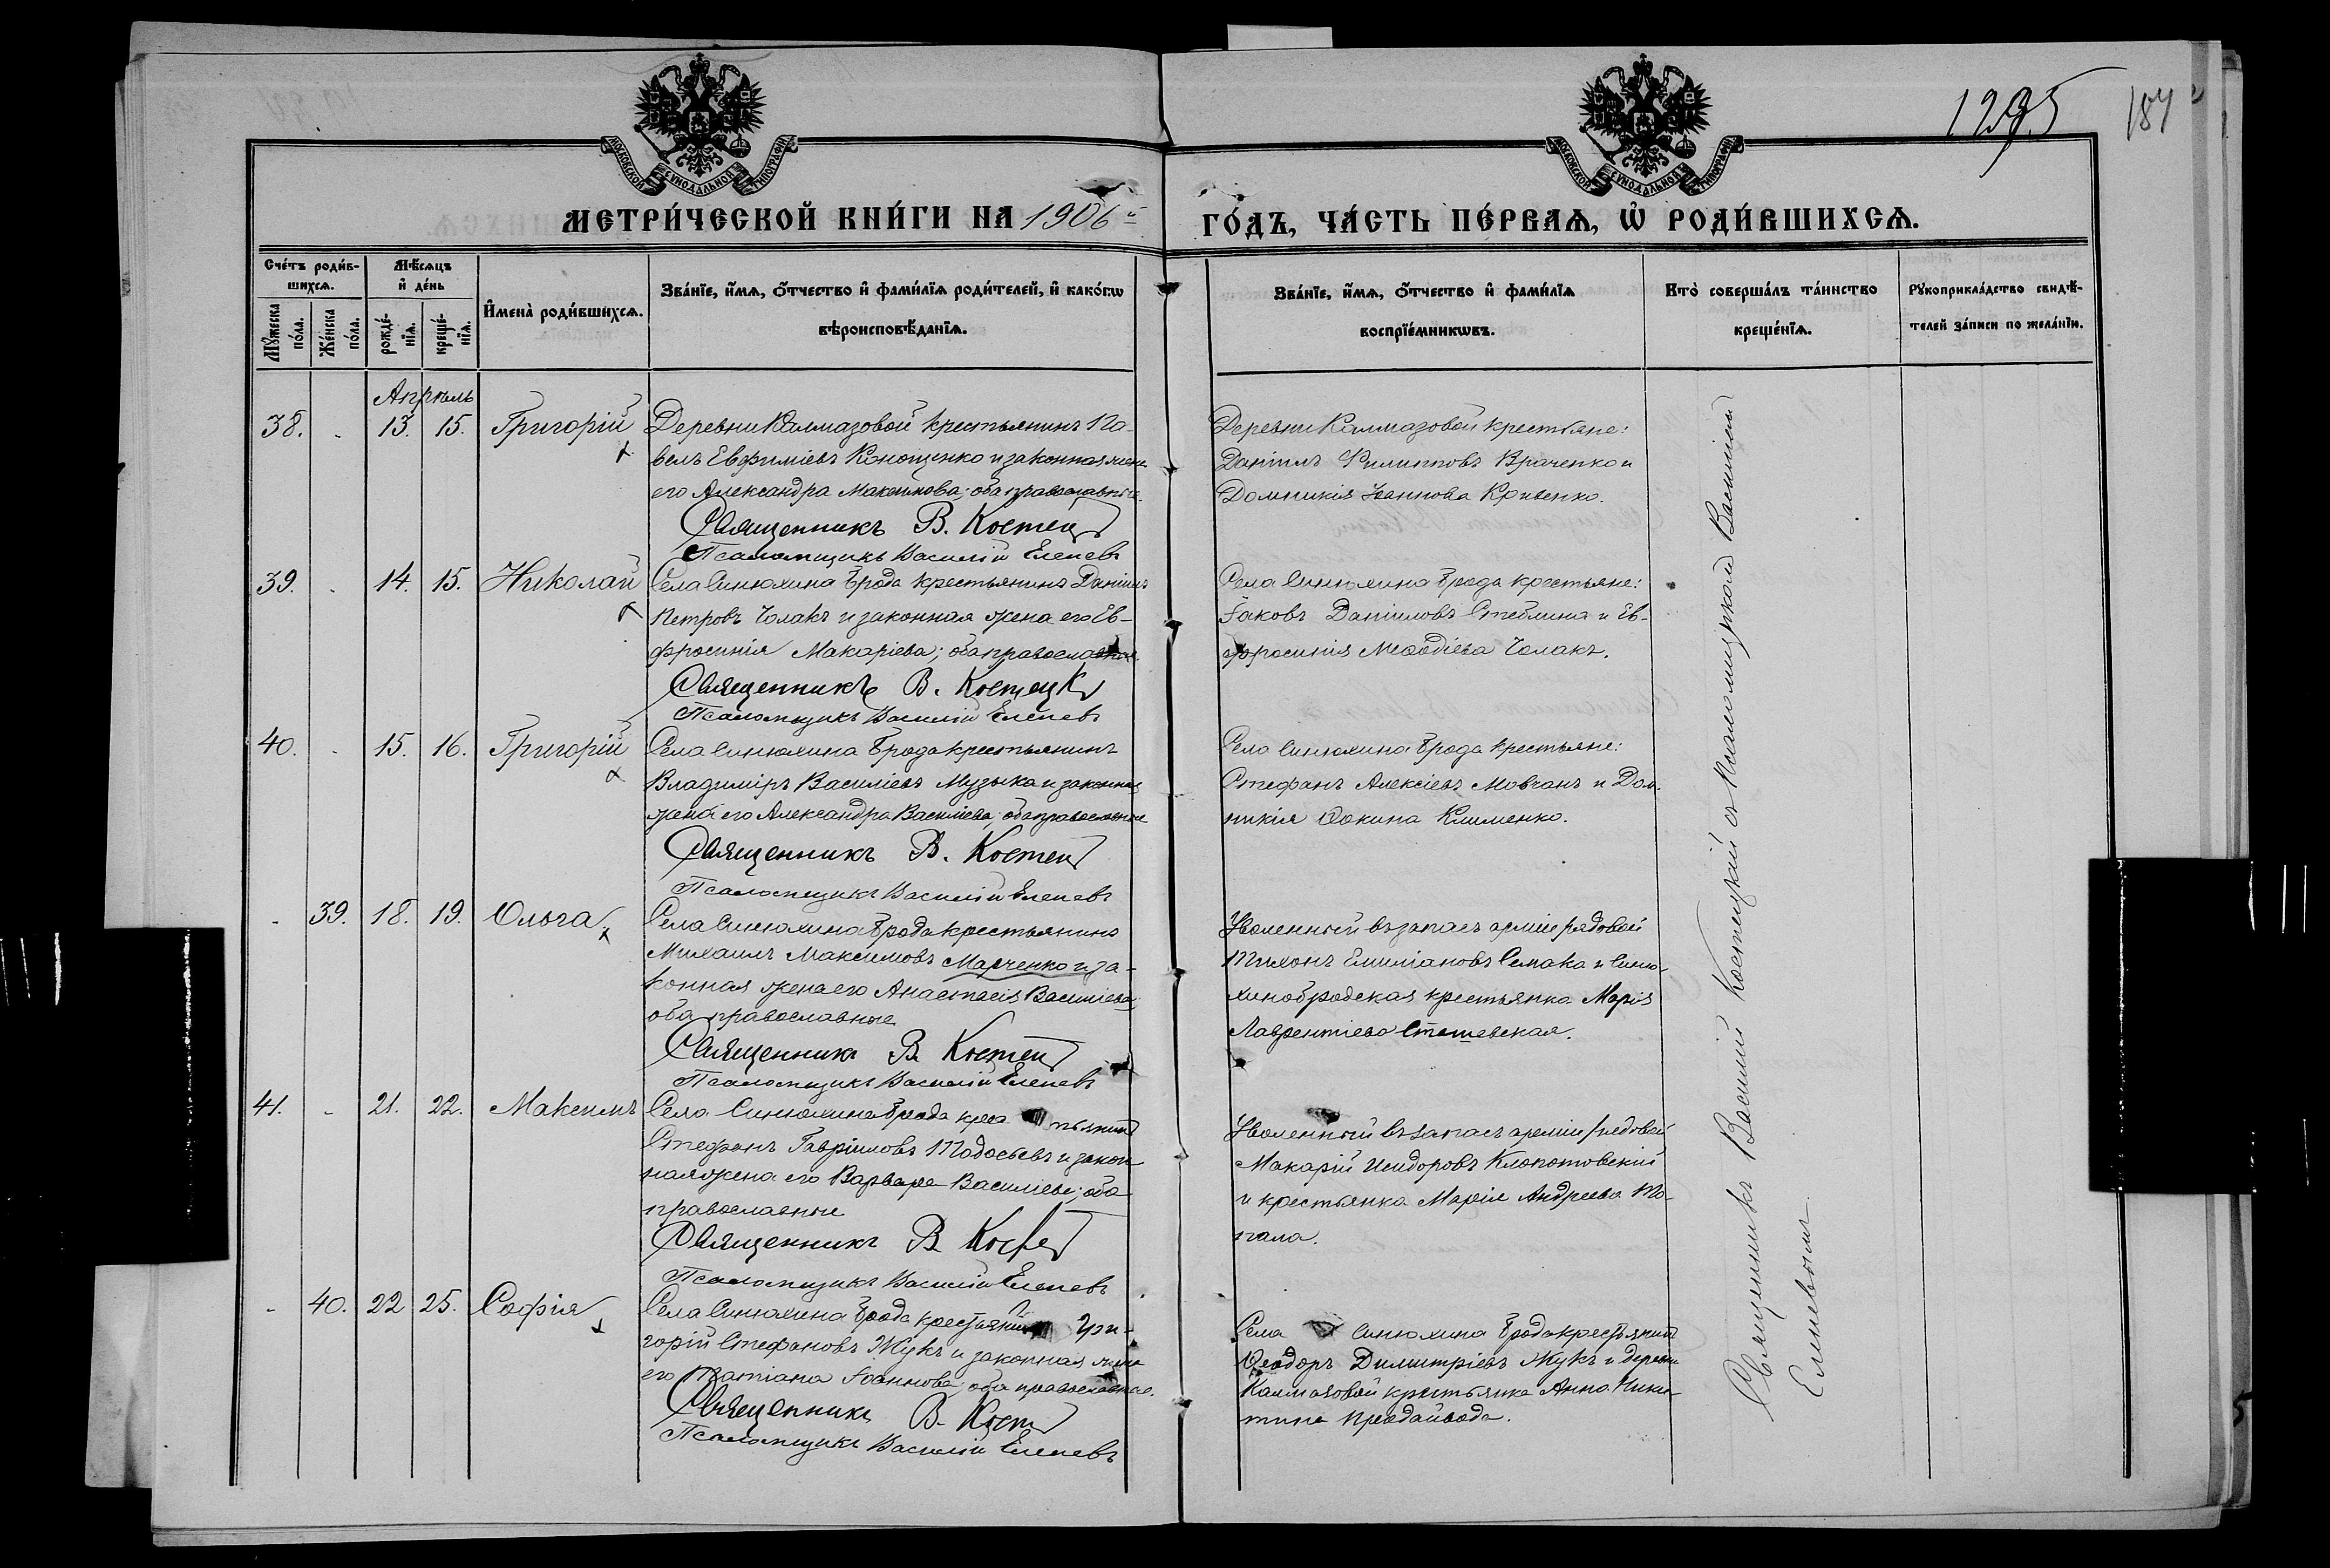 1295
187
МОСКОВСКОЙ СѴНОДАЛЬНОЙ ТИПОГРАФІИ
МОСКОВСКОЙ СѴНОДАЛЬНОЙ ТИПОГРАФІИ
МЕТРИ́ЧЕСКОЙ КНИ́ГИ НА 1906й
ГО́ДЪ, ЧА́СТЬ ПЕ́РВАѦ, Ѡ҆ РОДИ́ВШИХСѦ.
Сче́тъ роди́в-
шихсѧ.
Мꙋ́жеска по́ла.
Же́нска по́ла.
Мѣ́сѧцъ
и҆ де́нь
рожде́-
нїѧ.
креще́-
нїѧ.
И҆мена̀ роди́вшихсѧ.
Зва́нїе, и҆́мѧ, ѻ҆́тчество и҆ фами́лїѧ роди́телей, и҆ како́гѡ
вѣроисповѣ́данїѧ.
Зва́нїе, и҆́мѧ, ѻ҆́тчество и҆ фами́лїѧ
воспрїе́мникѡвъ.
Кто̀ соверша́лъ та́инство
креще́нїѧ.
Рꙋкоприкла́дство свидѣ́-
телей за́писи по жела́нїю.
Апрѣль
38. - 13. 15. Григорій
Деревни Калмазовой крестьянинъ Па-
велъ Евфиміевъ Конощенко и законная жена
его Александра Максимова; оба православные.
Священникъ В. Костец
Псаломщикъ Василій Еленевъ
Деревни Калмазовой крестьяне:
Даніилъ Филипповъ Враченко и
Домникія Іоаннова Кривенко.
39. - 14. 15. Николай
Села Синюхина Брода крестьянинъ Даніилъ
Петровъ Чолакъ и законная жена его Ев-
фросинія Макаріева; оба православные
Священникъ В. Костецк
Псаломщикъ Василій Еленевъ
Села Синюхина Брода крестьяне:
Іаковъ Даніиловъ Стеблина и Ев-
фросинія Меѳодіева Чолакъ.
40. - 15. 16. Григорій
Села Синюхина Брода крестьянинъ
Владиміръ Василіевъ Музыка и законная
жена его Александра Василіева; оба православные
Священникъ В. Костец
Псаломщикъ Василій Еленевъ
Села Синюхина Брода крестьяне:
Стефанъ Алексіевъ Мовчанъ и Дом-
никія Ѳокина Клименко.
- 39. 18. 19. Ольга
Села Синюхина Брода крестьянинъ
Михаилъ Максимовъ Марченко и за-
конная жена его Анастасія Василіева;
оба православные
Священникъ В. Костец
Псаломщикъ Василій Еленевъ
Уволенный въ запасъ арміи рядовой
Тихонъ Емиліановъ Семака и Синю-
хинобродская крестьянка Марія
Лаврентіева Сташевская.
41. - 21. 22. Максимъ
Села Синюхина Брода крестьянинъ
Стефанъ Гавріиловъ Тодосьевъ и закон-
ная жена его Варвара Василіева; оба
православные
Священникъ В. Костец
Псаломщикъ Василій Еленевъ
Уволенный въ запасъ арміи рядовой
Макарій Исидоровъ Клопотовскій
и крестьянка Марія Андреева То-
пала.
- 40. 22 25. Софія
Села Синюхина Брода крестьянинъ Гри-
горій Стефановъ Жукъ и законная жена
его Татіана Іоаннова; оба православные.
Священникъ В. Кост
Псаломщикъ Василій Еленевъ
Села Синюхина Брода крестьянинъ
Ѳеодоръ Димитріевъ Жукъ и деревни
Калмазовой крестьянка Анна Ники-
тина
Священникъ Василій Костецкій съ псаломщикомъ Василіемъ
Еленевымъ